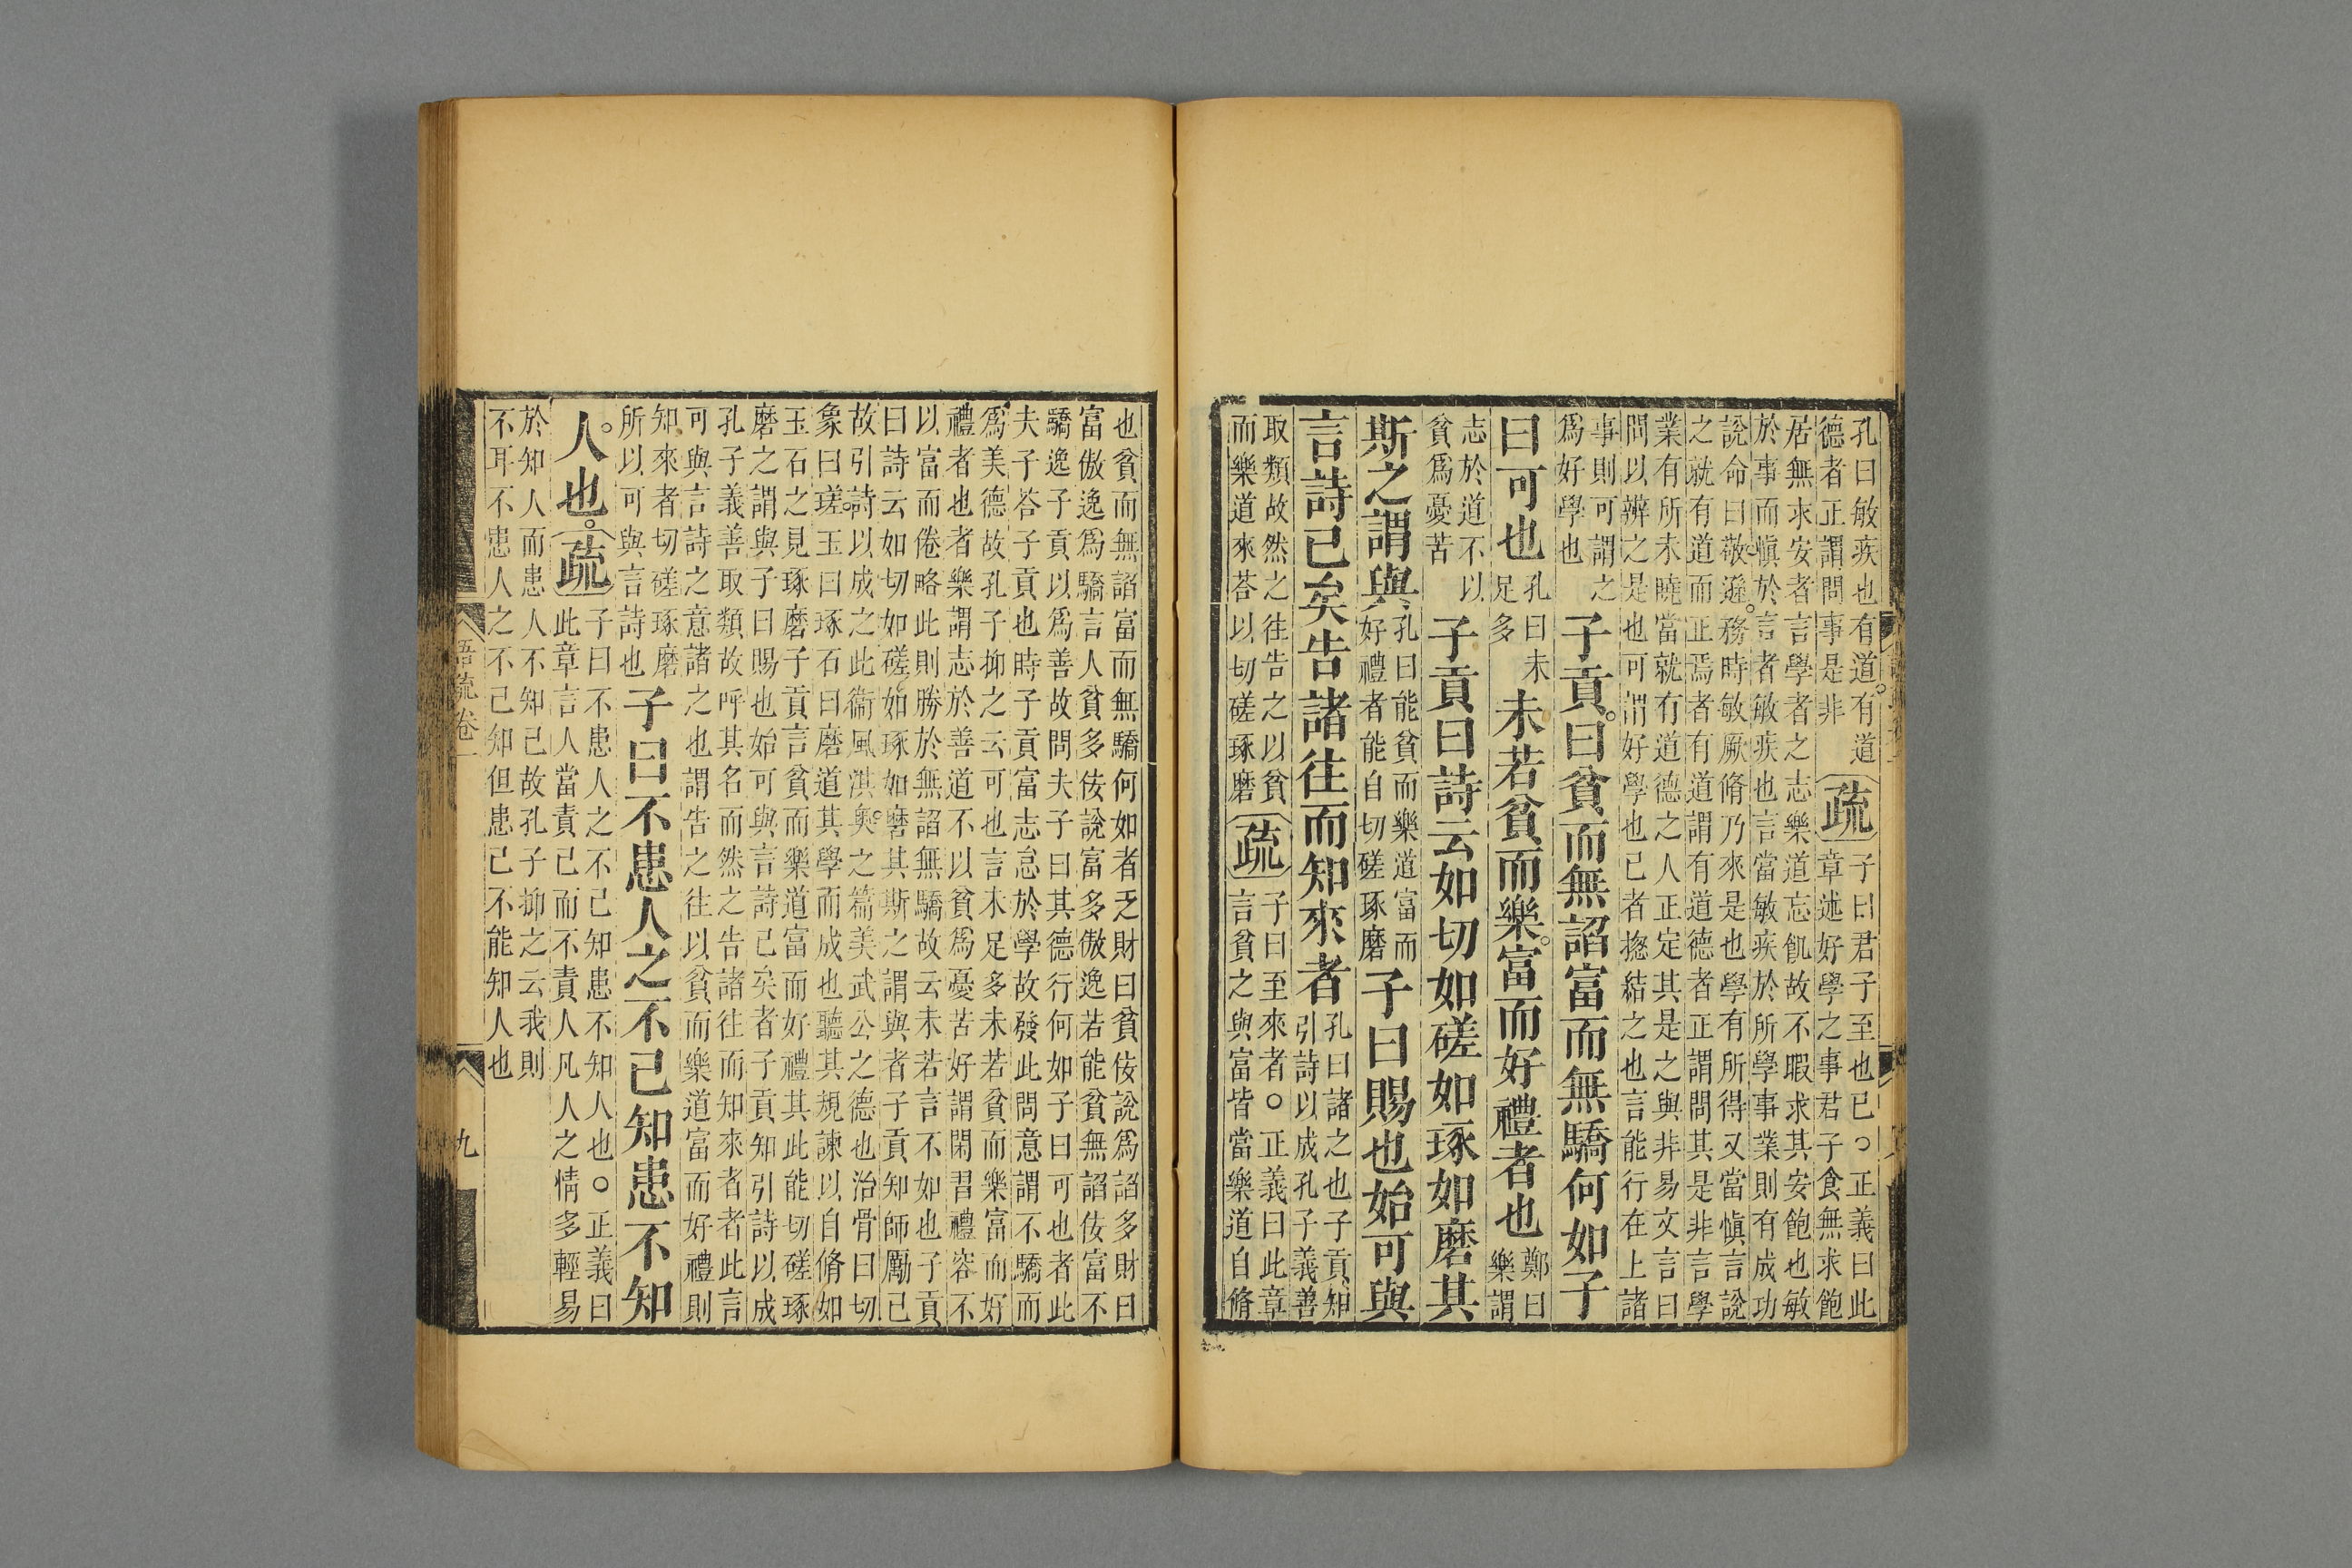 孔曰敏疾也有道有道
德者正謂問事是非
疏
子曰君子至也已○正義曰此
章述好學之事君子食無求飽
居無求安者言學者之志樂道忘飢故不暇求其安飽也敏
於事而愼於言者敏疾也言當敏疾於所學事業則有成功
說命曰敬遜務時敏厥脩乃來是也學有所得又當愼言說
之就有道而正焉者有道謂有道德者正謂問其是非言學
業有所未曉當就有道德之人正定其是之與非易文言曰
問以辨之是也可謂好學也已者揔結之也言能行在上諸
事則可謂之
爲好學也
子貢曰貧而無諂富而無驕何如子
曰可也
孔曰未
足多
未若貧而樂富而好禮者也
鄭曰
樂謂
志於道不以
貧爲憂苦
子貢曰詩云如切如磋如琢如磨其
斯之謂與
孔曰能貧而樂道富而
好禮者能自切磋琢磨
子曰賜也始可與
言詩已矣告諸往而知來者
孔曰諸之也子貢知
引詩以成孔子義善
取類故然之往告之以貧
而樂道來荅以切磋琢磨
疏
子曰至來者○正義曰此章
言貧之與富皆當樂道自脩
也貧而無諂富而無驕何如者乏財曰貧佞說爲諂多財曰
富傲逸爲驕言人貧多佞說富多傲逸若能貧無諂佞富不
驕逸子貢以爲善故問夫子曰其德行何如子曰可也者此
夫子荅子貢也時子貢富志怠於學故發此問意謂不驕而
爲美德故孔子抑之云可也言未足多未若貧而樂富而好
禮者也者樂謂志於善道不以貧爲憂苦好謂閑習禮容不
以富而倦略此則勝於無諂無驕故云未若言不如也子貢
曰詩云如切如磋如琢如磨其斯之謂與者子貢知師勵己
故引詩以成之此衞風淇奧之篇美武公之德也治骨曰切
象曰瑳玉曰琢石曰磨道其學而成也聽其規諫以自脩如
玉石之見琢磨子貢言貧而樂道富而好禮其此能切磋琢
磨之謂與子曰賜也始可與言詩已矣者子貢知引詩以成
孔子義善取類故呼其名而然之告諸往而知來者者此言
可與言詩之意諸之也謂告之往以貧而樂道富而好禮則
知來者切磋琢磨
所以可與言詩也
子曰不患人之不己知患不知
人也
疏
子曰不患人之不己知患不知人也○正義曰
此章言人當責己而不責人凡人之情多輕易
於知人而患人不知己故孔子抑之云我則
不耳不患人之不己知但患己不能知人也
語疏卷一
九